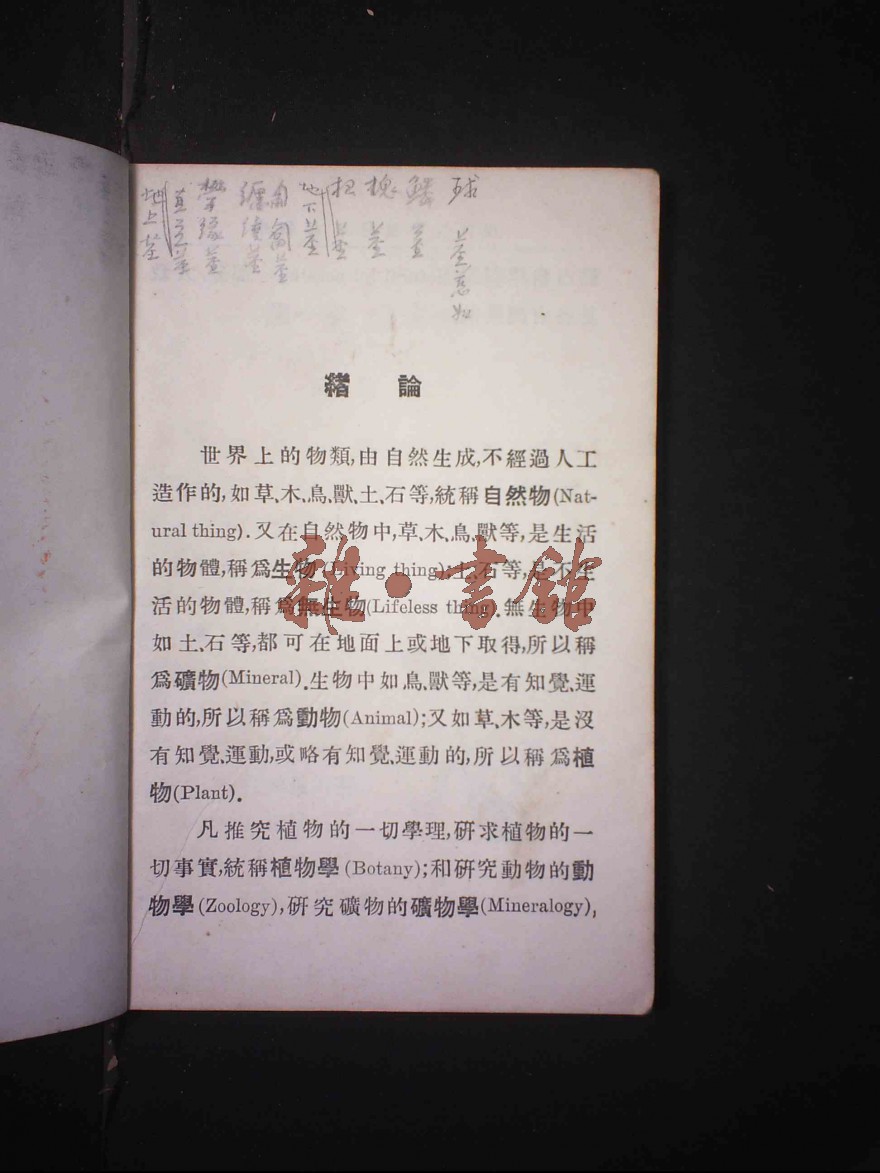 球莖 慈姑
鱗莖
塊莖
根莖
地下莖
匍匐莖
纏繞莖
攀緣莖
直立莖
地上莖
緒論
世界上的物類,由自然生成,不經過人工
造作的,如草、木、鳥、獸、土、石等,統稱自然物(Nat-
ural thing).又在自然物中,草、木、鳥、獸等,是生活
的物體,稱爲生物(Living thing);土、石等,是不生
活的物體,稱爲無生物(Lifeless thing).無生物中
如土、石等,都可在地面上或地下取得,所以稱
爲礦物(Mineral).生物中如鳥、獸等,是有知覺、運
動的,所以稱爲動物(Animal);又如草、木等,是沒
有知覺、運動,或略有知覺、運動的,所以稱爲植
物(Plant).
凡推究植物的一切學理,研求植物的一
切事實,統稱植物學(Botany);和研究動物的動
物學(Zoology),研究礦物的礦物學(Mineralogy),
雜·書館